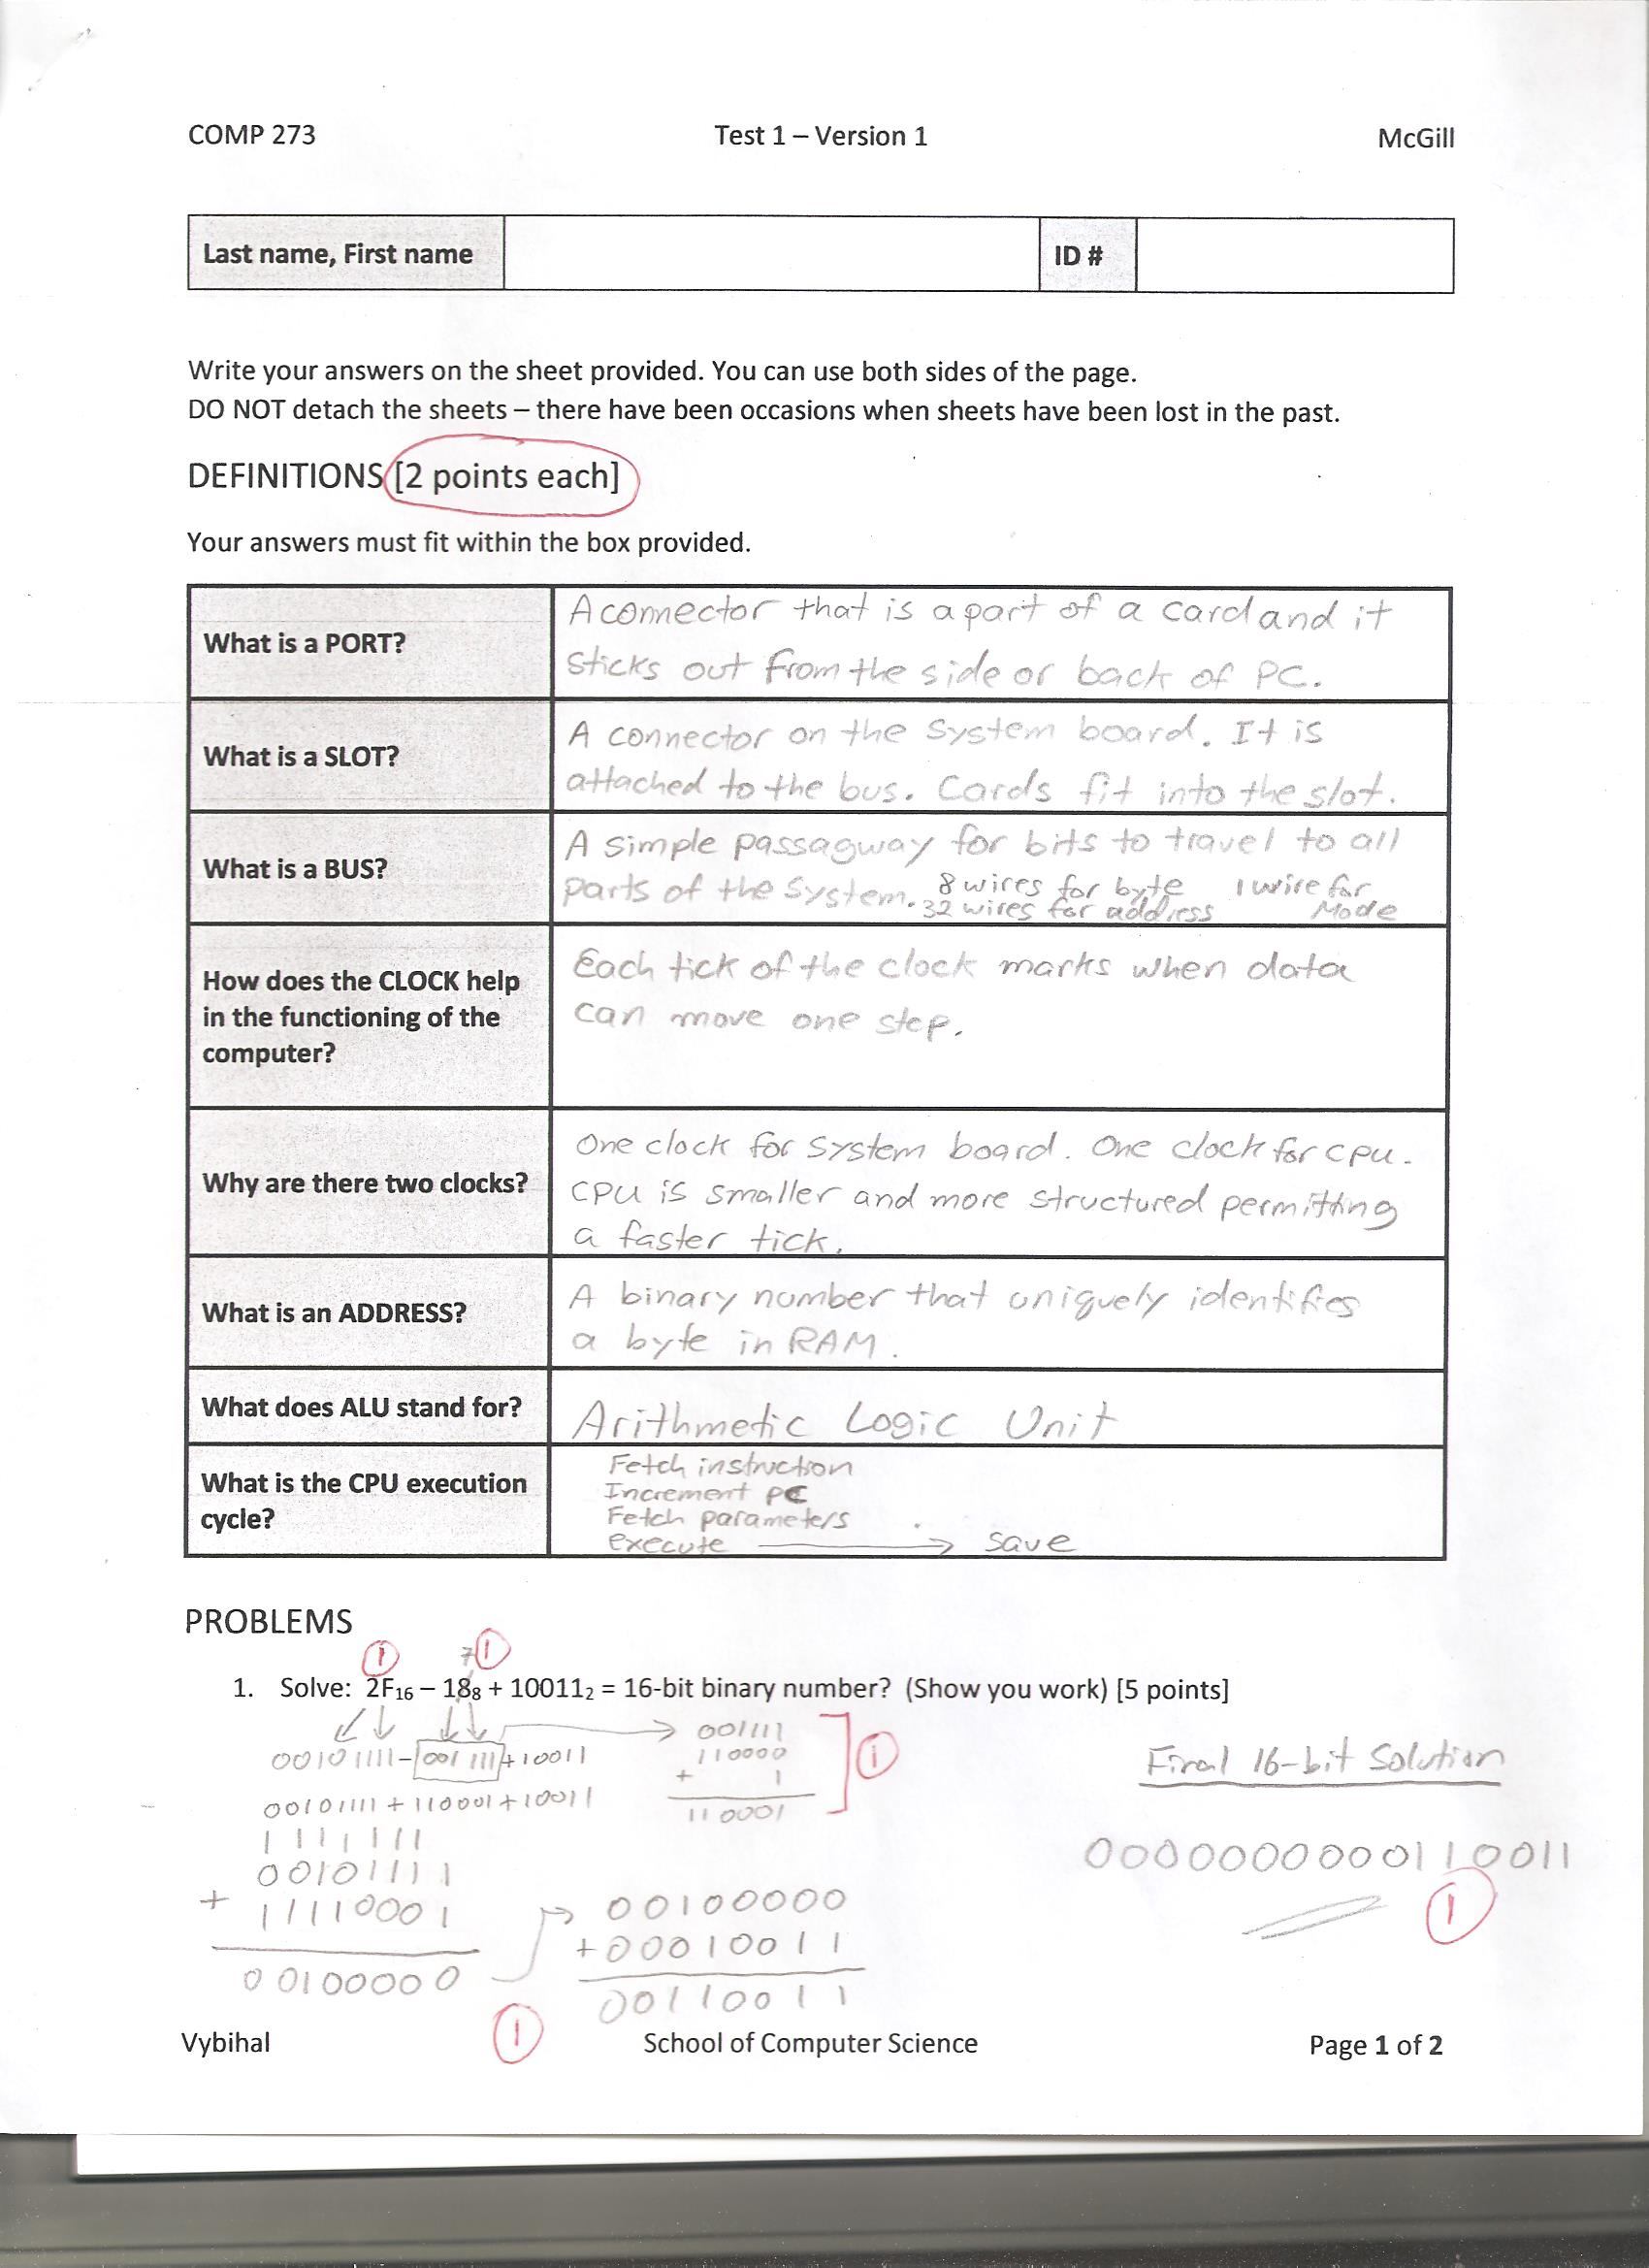 COMP 273 Test 1 – Version 1 McGill
Last name, First name ID #
Write your answers on the sheet provided. You can use both sides of the page.
DO NOT detach the sheets – there have been occasions when sheets have been lost in the past.
DEFINITIONS [2 points each]
Your answers must fit within the box provided.
What is a PORT?
A connector that is a part of a card and it
sticks out from the side or back of PC.
What is a SLOT?
A connector on the system board. It is
attached to the bus. Cards fit into the slot.
What is a BUS?
A simple passagway for bits to travel to all
parts of the system. 8 wires for byte 1 wire for
32 wires for address Mode
How does the CLOCK help
in the functioning of the
computer?
Each tick of the clock marks when data
can move one step.
Why are there two clocks?
One clock for system board. One clock for cpu.
CPU is smaller and more structured permitting
a faster tick.
What is an ADDRESS?
A binary number that uniquely identifies
a byte in RAM.
What does ALU stand for?
Arithmetic Logic Unit
What is the CPU execution
cycle?
Fetch instruction
Increment PC
Fetch parameters
execute → save
PROBLEMS
1 7 1
1. Solve: 2F₁₆ – 18₈ + 10011₂ = 16-bit binary number? (Show you work) [5 points]
00101111 - 001 111 + 10011
00101111 + 110001 + 10011
1111111
00101111
+ 11110001
00100000
1
001111
110000
+ 1
110001
1
00100000
+ 00010011
00110011
Final 16-bit Solution
0000000000110011
1
Vybihal School of Computer Science Page 1 of 2